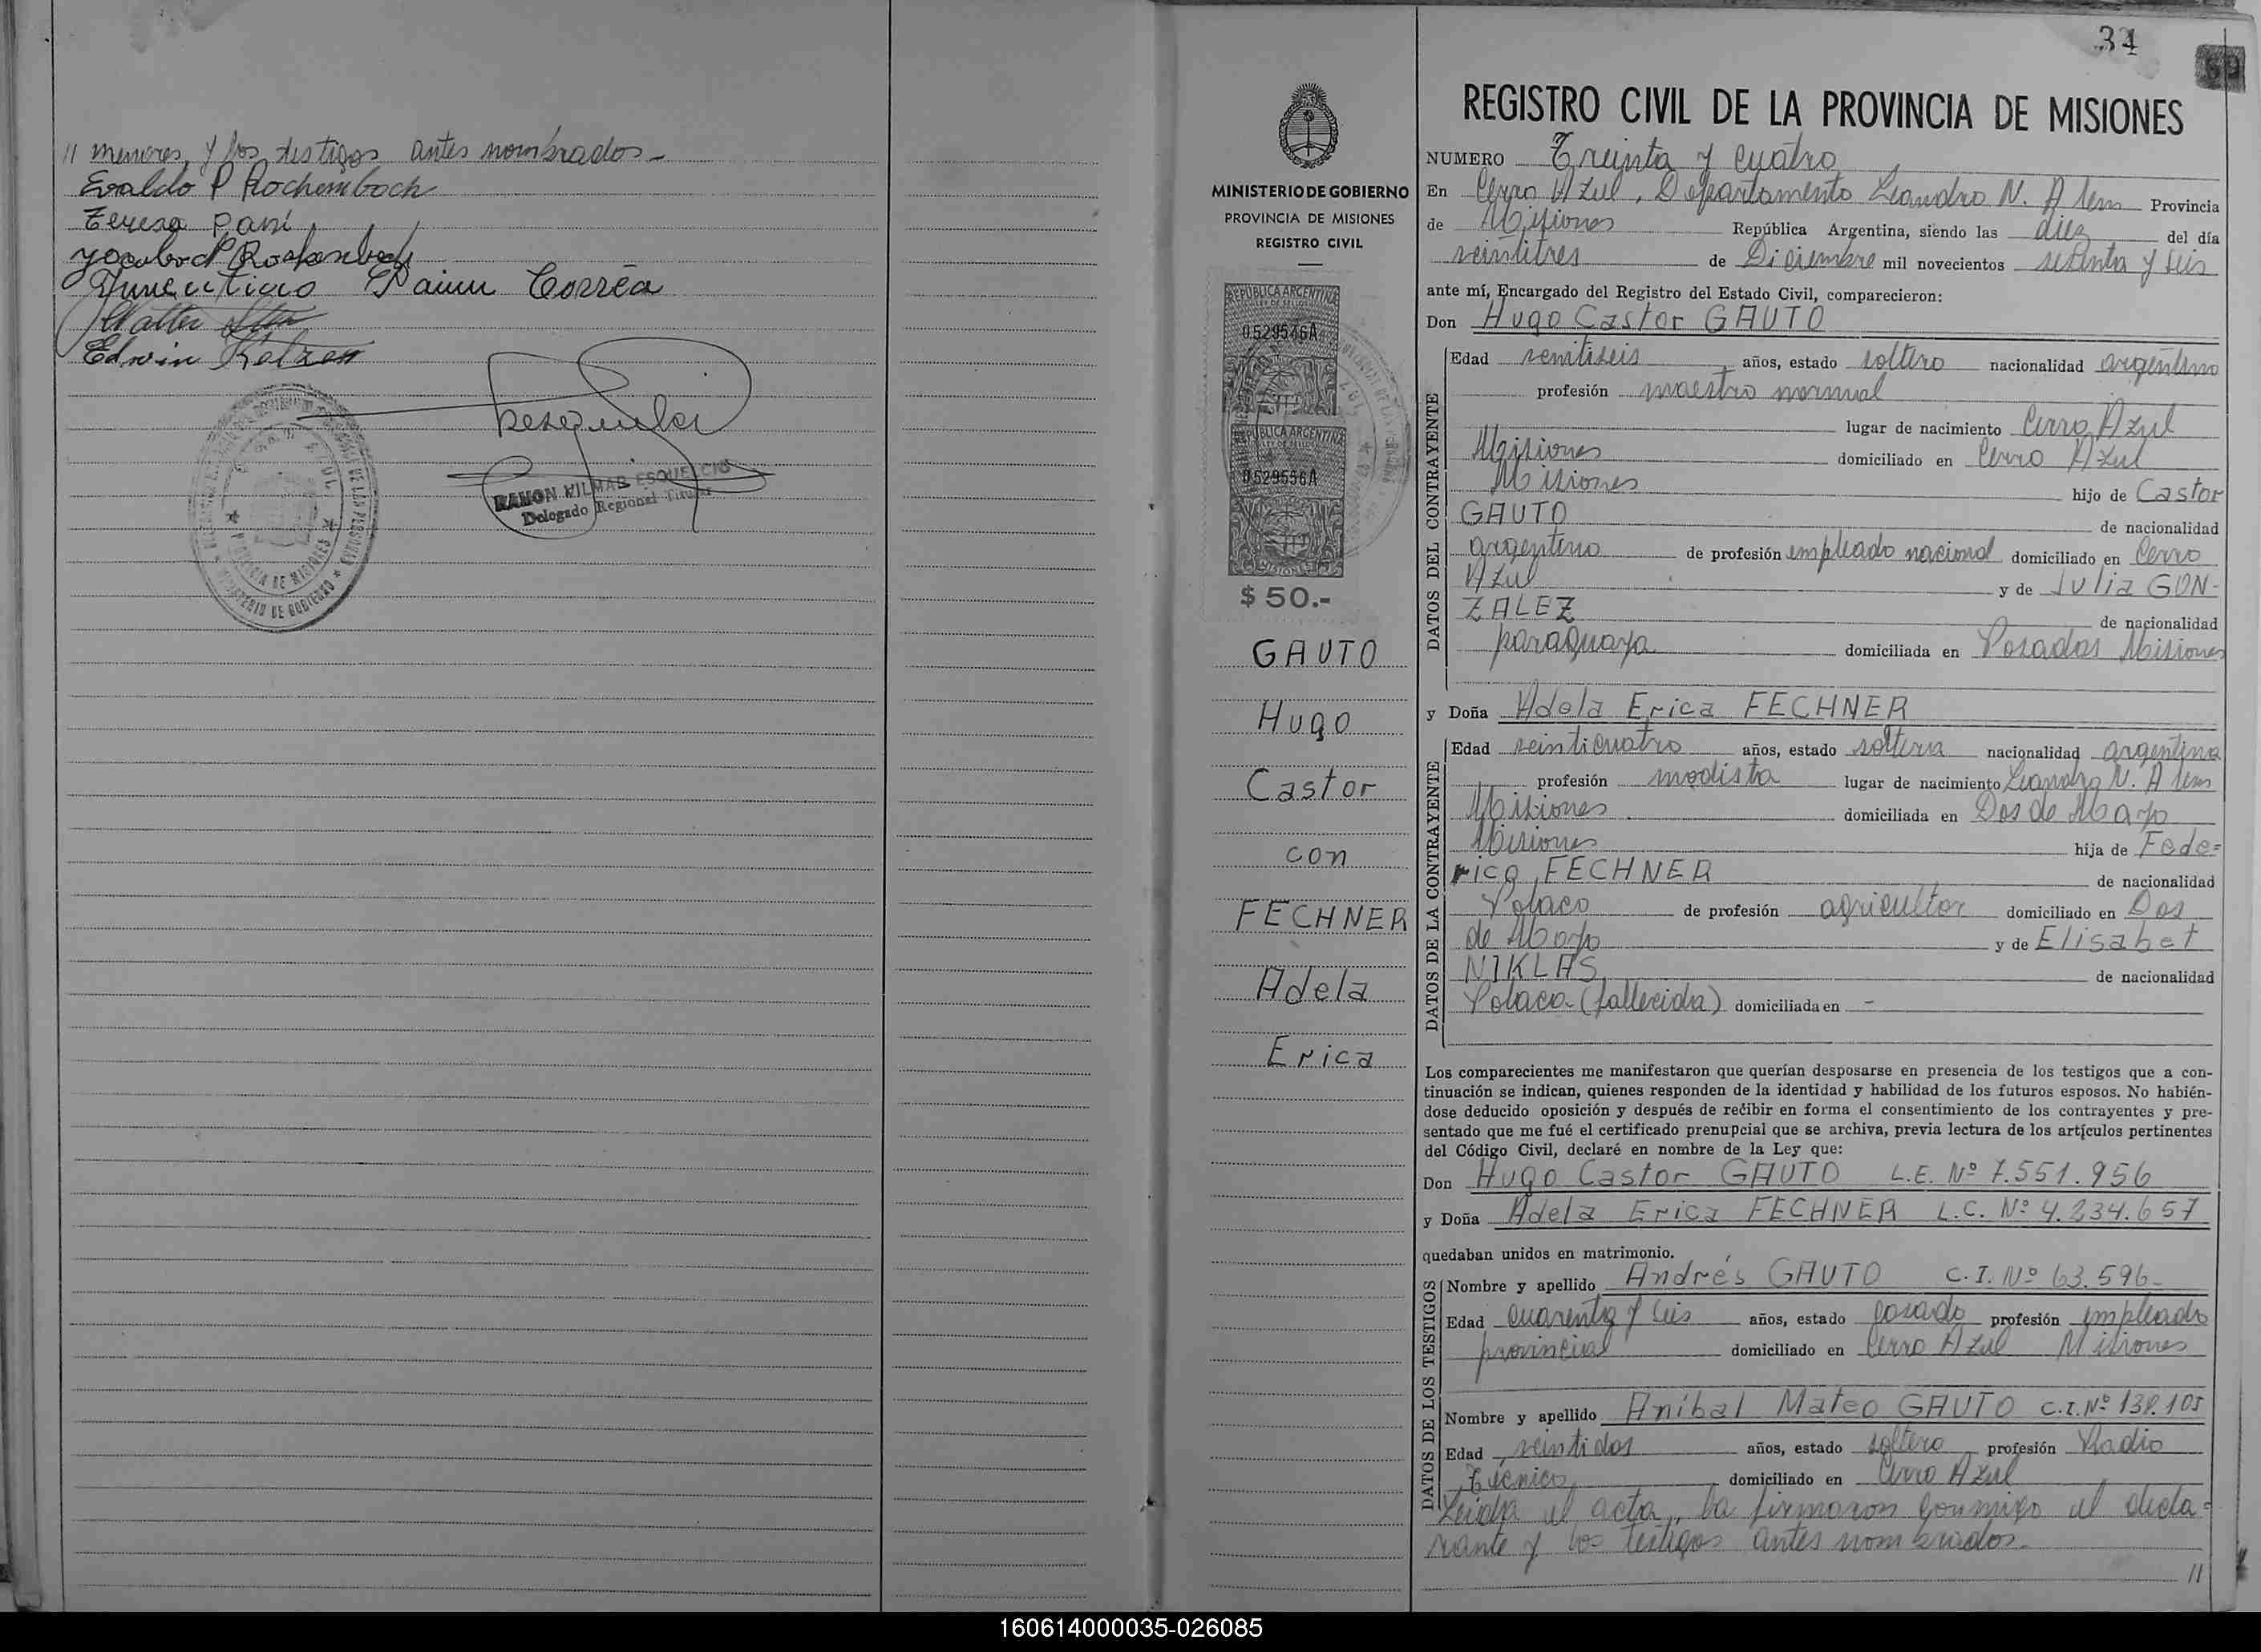 // menores, y los testigos antes nombrados -
Evaldo P Rochembach
Teresa Pani
Correa
Walter
Edwin
RAMON WILMAR ESQUELCIO
Delegado Regional Titular
34
MINISTERIO DE GOBIERNO
PROVINCIA DE MISIONES
REGISTRO CIVIL
REPUBLICA ARGENTINA
0529546A
REPUBLICA ARGENTINA
0529556A
$ 50.-
GAUTO
Hugo
Castor
con
FECHNER
Adela
Erica
REGISTRO CIVIL DE LA PROVINCIA DE MISIONES
NUMERO Treinta y cuatro
En Cerro Azul, Departamento Leandro N. Alem Provincia
de Misiones República Argentina, siendo las diez del día
veintitres de Diciembre mil novecientos setenta y seis
ante mí, Encargado del Registro del Estado Civil, comparecieron:
Don Hugo Castor GAUTO
DATOS DEL CONTRAYENTE
Edad veintiseis años, estado soltero nacionalidad argentino
profesión maestro normal
lugar de nacimiento Cerro Azul
Misiones domiciliado en Cerro Azul
Misiones hijo de Castor
GAUTO de nacionalidad
argentino de profesión empleado nacional domiciliado en Cerro
Azul y de Julia GON-
ZALEZ de nacionalidad
paraguaya domiciliada en Posadas Misiones
y Doña Adela Erica FECHNER
DATOS DE LA CONTRAYENTE
Edad veinticuatro años, estado soltera nacionalidad argentina
profesión modista lugar de nacimiento Leandro N. Alem
Misiones domiciliada en Dos de Mayo
Misiones hija de Fede=
rico FECHNER de nacionalidad
Polaco de profesión agricultor domiciliado en Dos
de Mayo y de Elisabet
NIKLAS de nacionalidad
Polaca (fallecida) domiciliada en -
Los comparecientes me manifestaron que querían desposarse en presencia de los testigos que a con-
tinuación se indican, quienes responden de la identidad y habilidad de los futuros esposos. No habién-
dose deducido oposición y después de recibir en forma el consentimiento de los contrayentes y pre-
sentado que me fué el certificado prenupcial que se archiva, previa lectura de los artículos pertinentes
del Código Civil, declaré en nombre de la Ley que:
Don Hugo Castor GAUTO L.E. Nº 7.551.956
y Doña Adela Erica FECHNER L.C. Nº 4.234.657
quedaban unidos en matrimonio.
DATOS DE LOS TESTIGOS
Nombre y apellido Andrés GAUTO C.I. Nº 63.596-
Edad cuarenta y seis años, estado casado profesión empleado
provincial domiciliado en Cerro Azul Misiones
Nombre y apellido Anibal Mateo GAUTO C.I. Nº 138.105
Edad veintidos años, estado soltero profesión Radio
Técnico domiciliado en Cerro Azul
Leída el acta, la firmaron conmigo el decla=
rante y los testigos antes nombrados.-
//
160614000035-026085